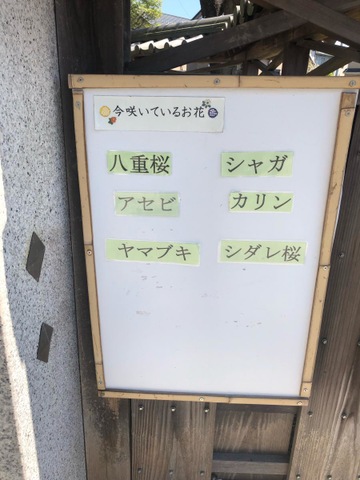 今咲いているお花
八重桜 シャガ
アセビ カリン
ヤマブキ シダレ桜